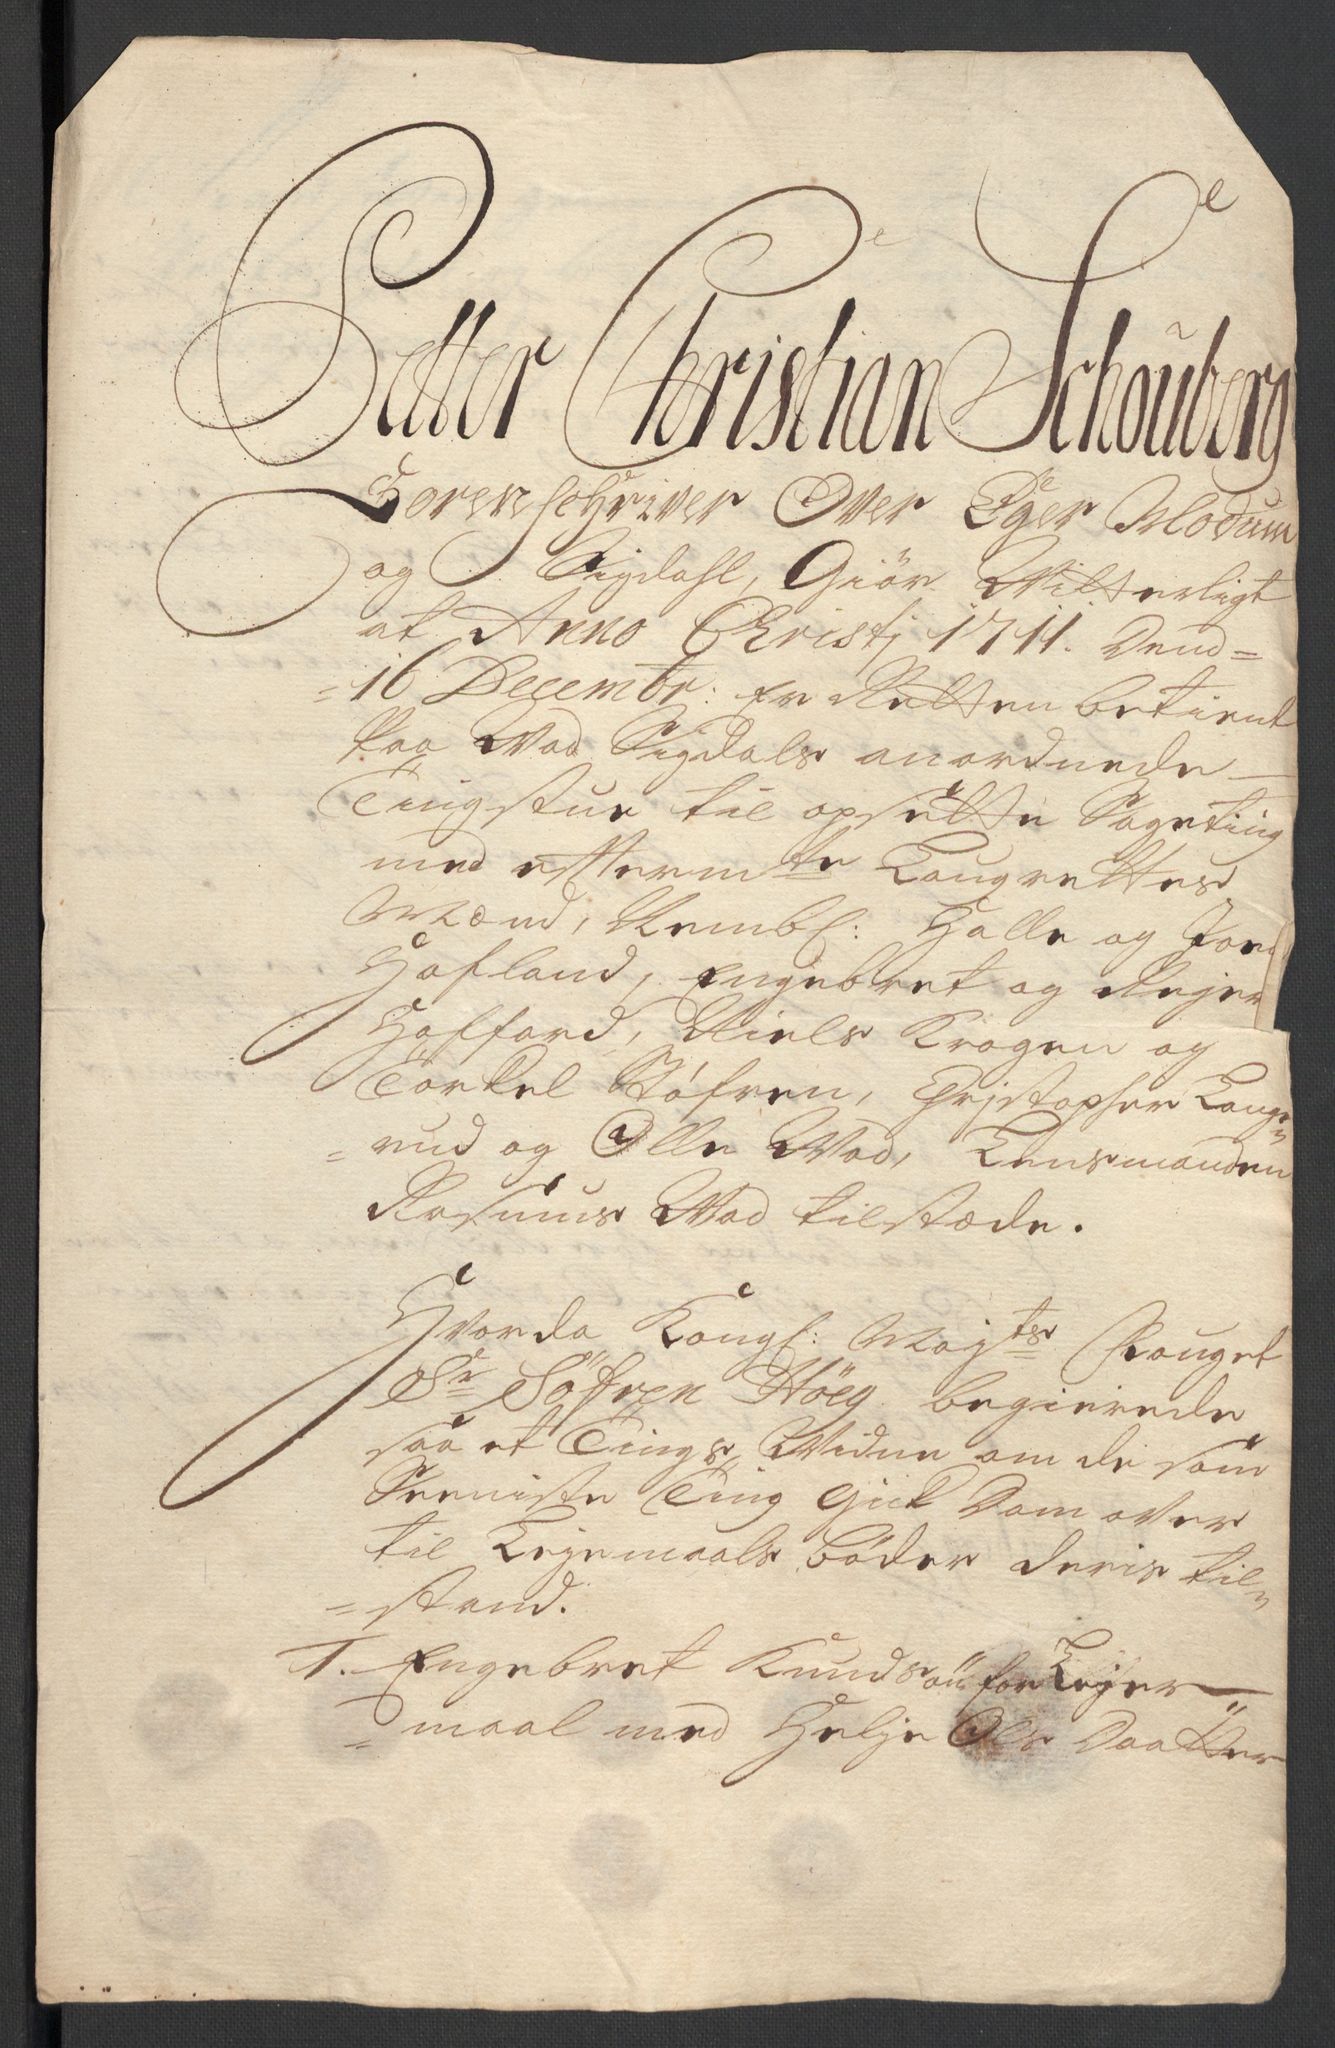 Petter Christian Schouberg
Sorenschriver Over Eger Modum
og Sigdahl, Giör Vitterligt
at Anno Christj 1711. Dend=
=16 Decembr: er Retten betient
paa Wad Sigdals anordnede
Tingstue til opsette Sageting
med efftermte Laugrettes
Mænd, Nembl: Halle og Joen
Hofland, Engebret og Rejer
Hoffard, Niels Krogen og
Torkel Stofren, Christopher Lange
=rud og Olle Wad, Lensmanden
Rasmus Wad tilstæde.
Hvorda Kongl: Mayts Fouget
Sr Söfren Höeg begierede
saa et Tings Widne om de som
Seeniste Ting Gick Dom over
til Lejemaals böder deris til=
=stand.
1. Engebret Knudsön for Lejer
=maal med Helje Ols Daatter